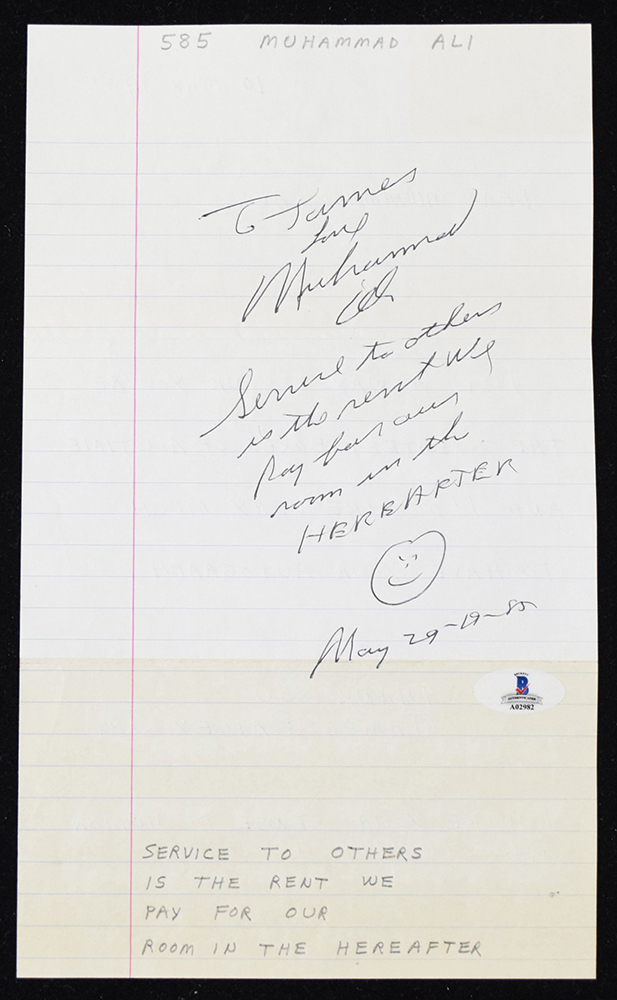 585 MUHAMMAD ALI
To James
Love
Muhammad
Ali
Service to others
is the rent We
Pay for our
room in the
HEREAFTER
May 29-19-85
BECKETT
B
AUTHENTICATED
A02982
SERVICE TO OTHERS
IS THE RENT WE
PAY FOR OUR
ROOM IN THE HEREAFTER